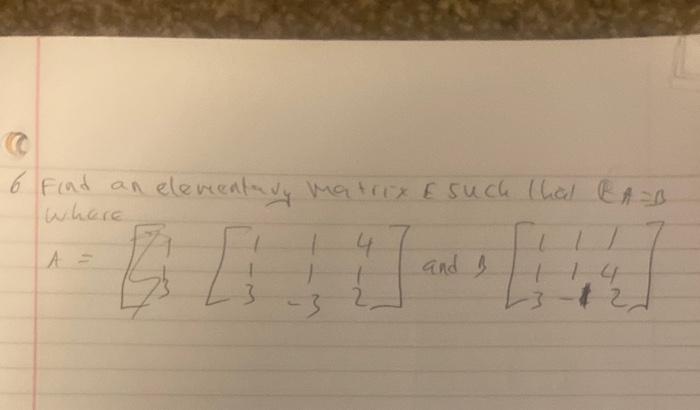 6 Find an elementary matrix E such that EA=B
where
A = [ 1 1 4 ] and B [ 1 1 1 ]
1 1 1 1 1 4
3 -3 2 3 -1 2